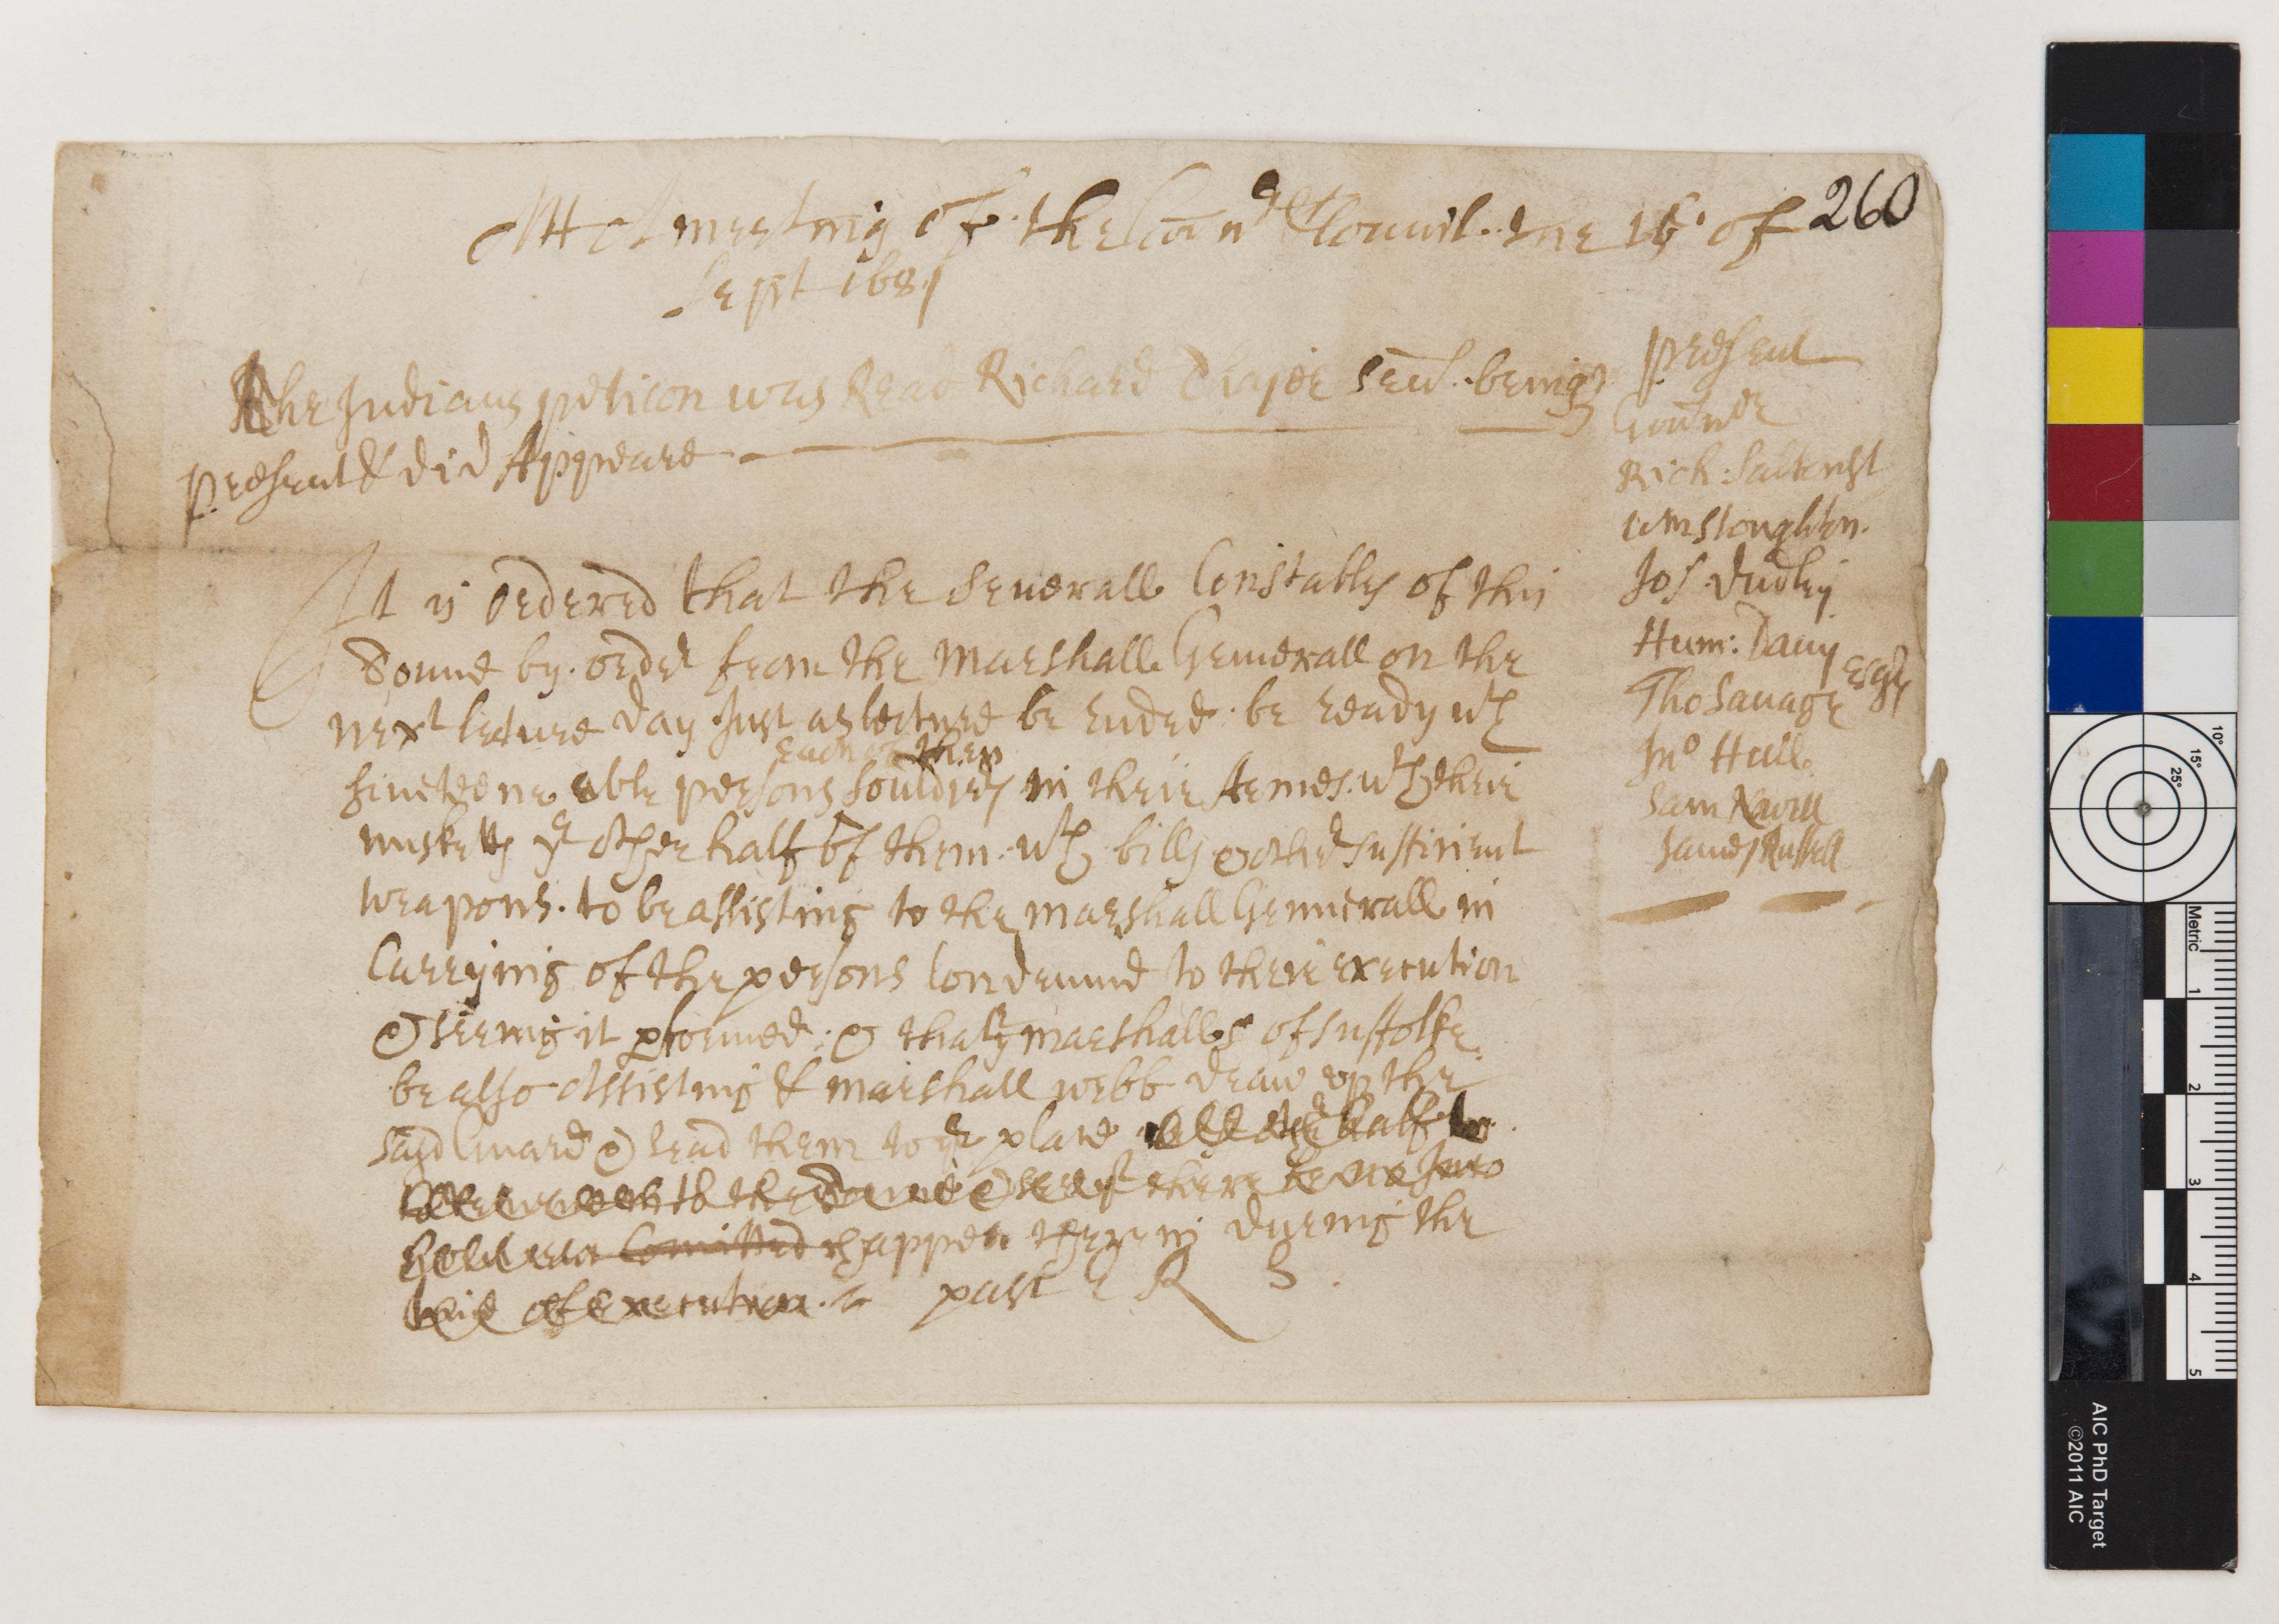 At A meeting of the Gou^r & Council the 16 of
260
Sept 1681
The Indians peticon was Read Richard Thajer sen^r being
present & did Appeare
present
Gou^r nor
Rich: Saltonst
Wm Stoughton
Jos Dudley
Hum: Davy
Tho Savage Esqrs
Jno Hull
Sam Nowell
James Russell
It is Ordered that the Seuerall Constables of this
Toune by order from the Marshall Generall on the
next lecture day Just as lecture be ended be ready wth
fiueteene able persons Souldiers in their Armes wth their
each of them
muskets ye other half of them wth bills & other sufficient
weapons to be assisting to the marshall Gennerall in
Carrying of the persons Condemnd to their execution
& seeing it pformed & that ye marshalls of Suffolke
be also Assisting & marshall webb draw vp the
said Guard & lead them to ye place half
to the Toune & see yt there be no
Comitted happen therein during the
of Execution past E R S
AIC PhD Target
©2011 AIC
Metric
1
2
3
4
5
10°
15°
25°